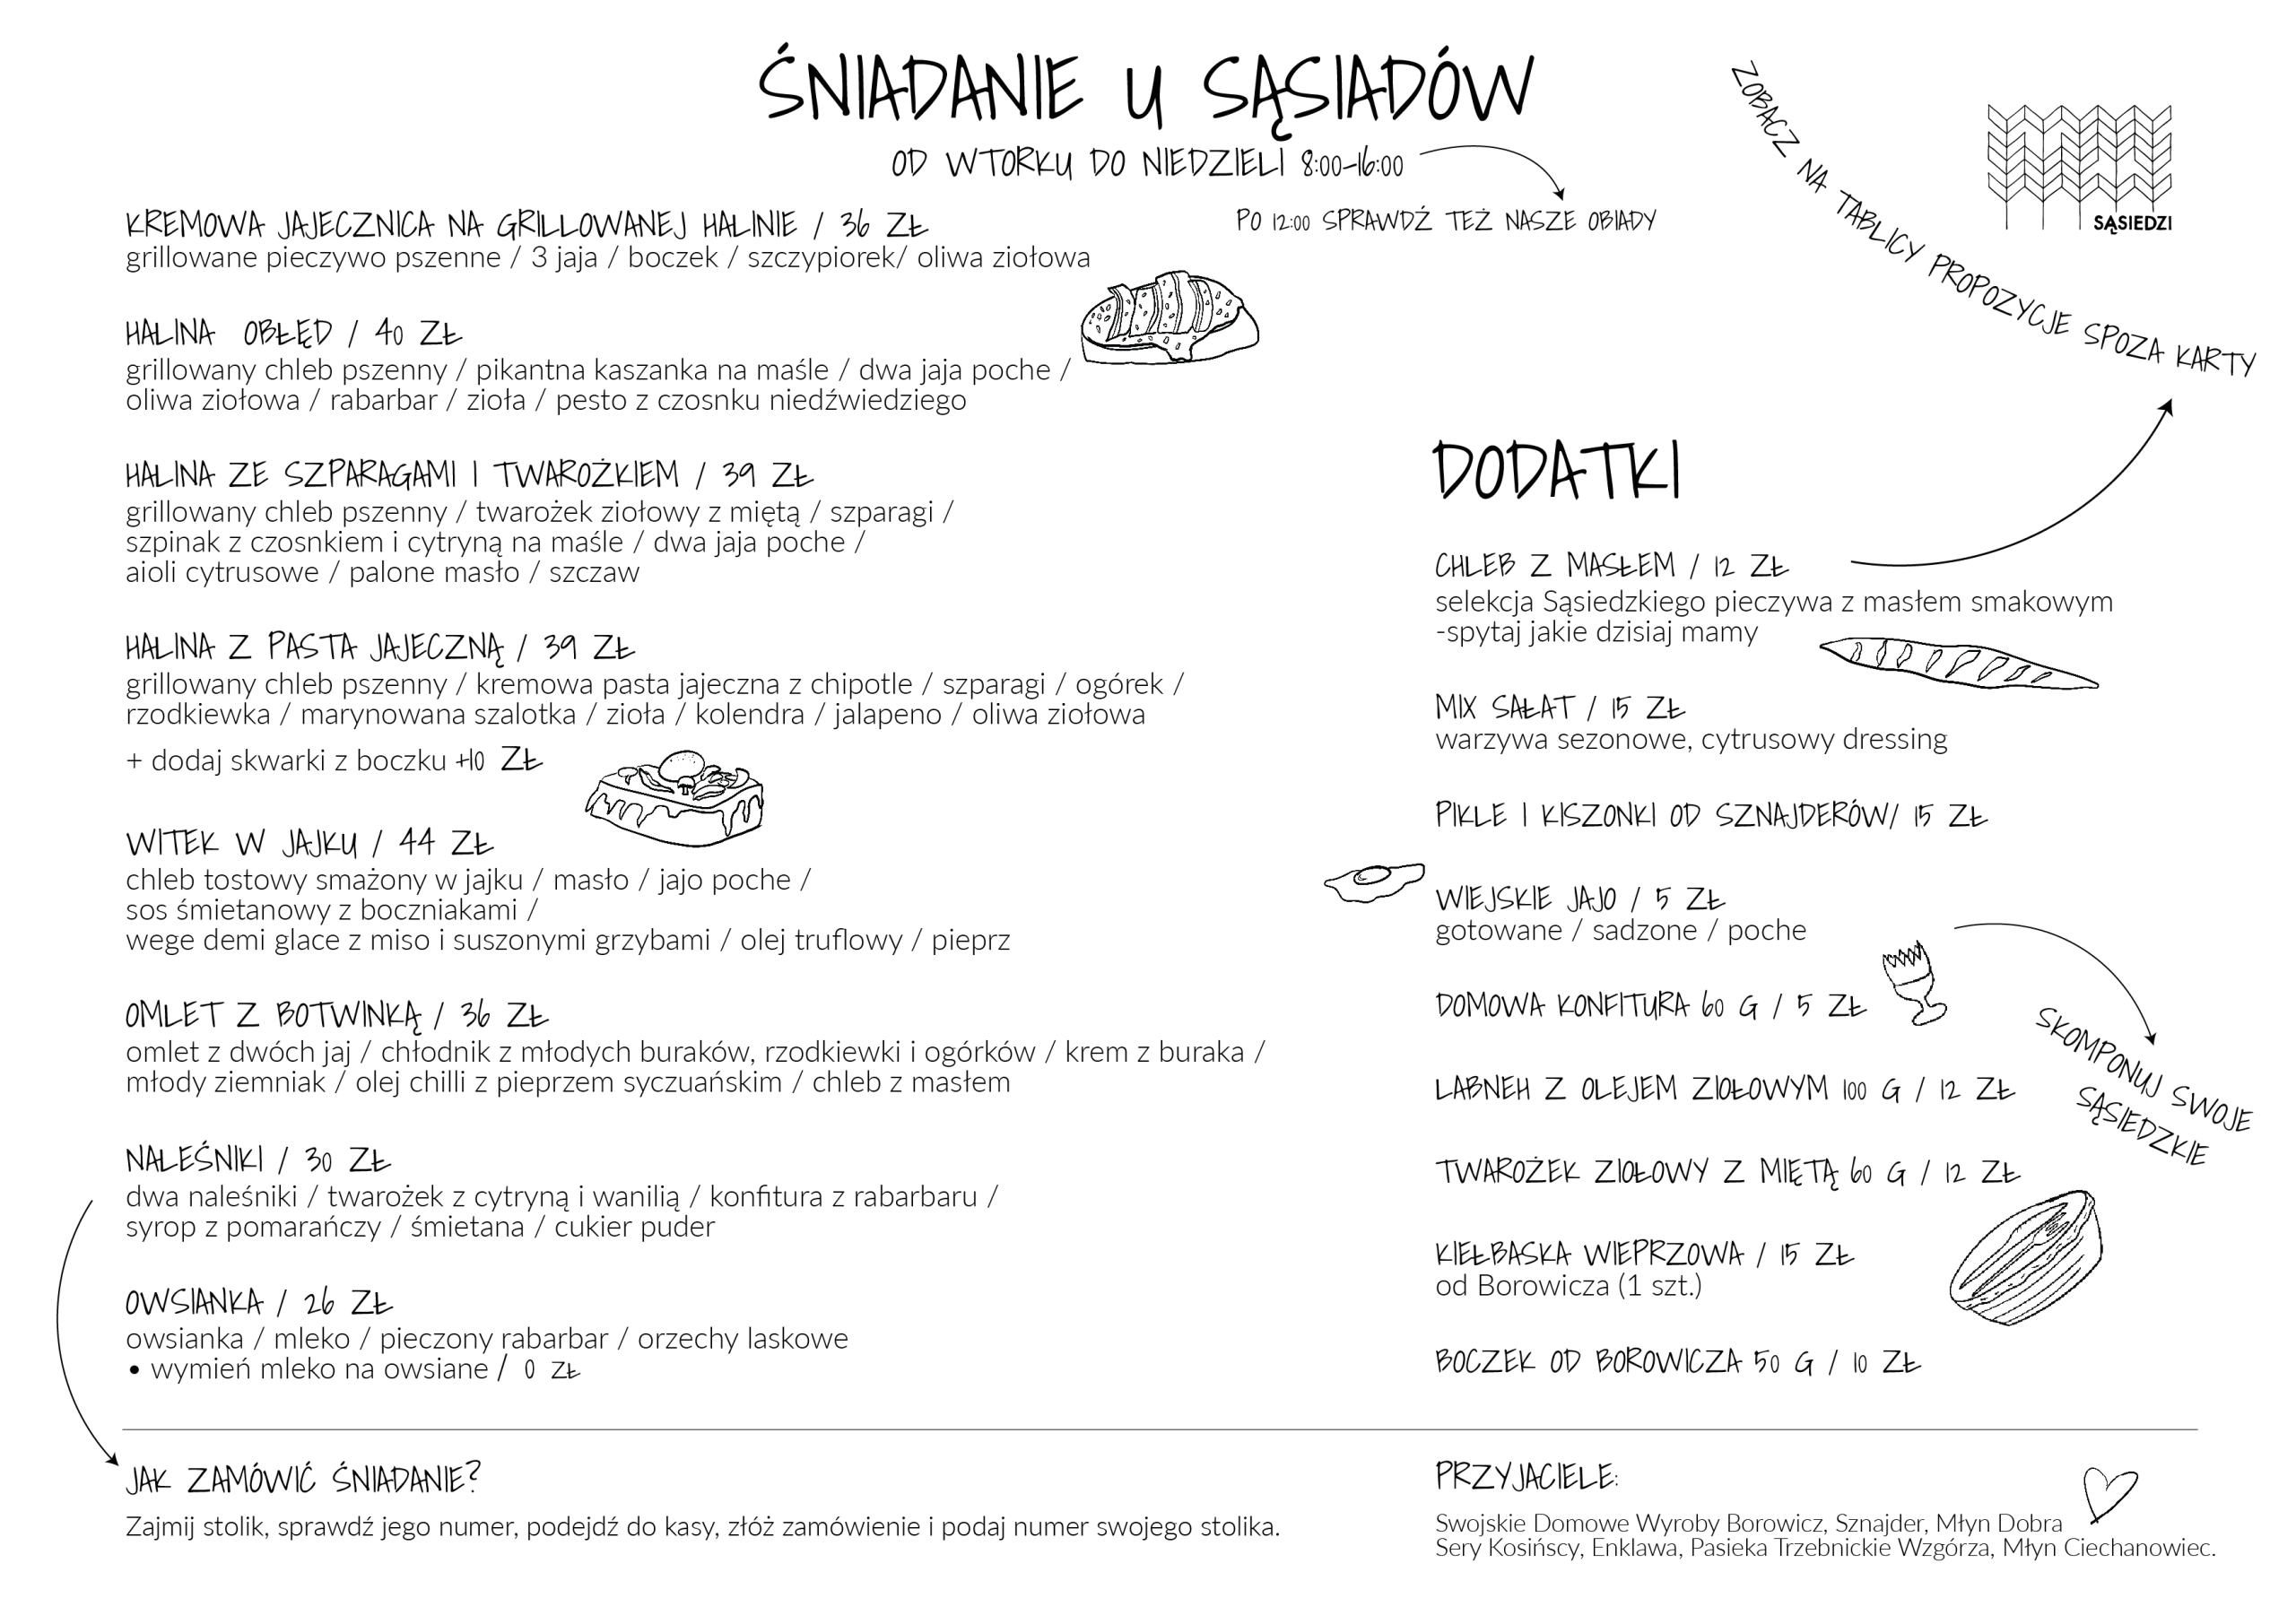 ŚNIADANIE U SĄSIADÓW
OD WTORKU DO NIEDZIELI 8:00-16:00
PO 12:00 SPRAWDŹ TEŻ NASZE OBIADY
ZOBACZ NA TABLICY PROPOZYCJE SPOZA KARTY
SĄSIEDZI
KREMOWA JAJECZNICA NA GRILLOWANEJ HALINIE / 36 ZŁ
grillowane pieczywo pszenne / 3 jaja / boczek / szczypiorek/ oliwa ziołowa
HALINA OBŁĘD / 40 ZŁ
grillowany chleb pszenny / pikantna kaszanka na maśle / dwa jaja poche /
oliwa ziołowa / rabarbar / zioła / pesto z czosnku niedźwiedziego
HALINA ZE SZPARAGAMI I TWAROŻKIEM / 39 ZŁ
grillowany chleb pszenny / twarożek ziołowy z miętą / szparagi /
szpinak z czosnkiem i cytryną na maśle / dwa jaja poche /
aioli cytrusowe / palone masło / szczaw
HALINA Z PASTA JAJECZNĄ / 39 ZŁ
grillowany chleb pszenny / kremowa pasta jajeczna z chipotle / szparagi / ogórek /
rzodkiewka / marynowana szalotka / zioła / kolendra / jalapeno / oliwa ziołowa
+ dodaj skwarki z boczku +10 ZŁ
WITEK W JAJKU / 44 ZŁ
chleb tostowy smażony w jajku / masło / jajo poche /
sos śmietanowy z boczniakami /
wege demi glace z miso i suszonymi grzybami / olej truflowy / pieprz
OMLET Z BOTWINKĄ / 36 ZŁ
omlet z dwóch jaj / chłodnik z młodych buraków, rzodkiewki i ogórków / krem z buraka /
młody ziemniak / olej chilli z pieprzem syczuańskim / chleb z masłem
NALEŚNIKI / 30 ZŁ
dwa naleśniki / twarożek z cytryną i wanilią / konfitura z rabarbaru /
syrop z pomarańczy / śmietana / cukier puder
OWSIANKA / 26 ZŁ
owsianka / mleko / pieczony rabarbar / orzechy laskowe
• wymień mleko na owsiane / 0 ZŁ
DODATKI
CHLEB Z MASŁEM / 12 ZŁ
selekcja Sąsiedzkiego pieczywa z masłem smakowym
-spytaj jakie dzisiaj mamy
MIX SAŁAT / 15 ZŁ
warzywa sezonowe, cytrusowy dressing
PIKLE I KISZONKI OD SZNAJDERÓW/ 15 ZŁ
WIEJSKIE JAJO / 5 ZŁ
gotowane / sadzone / poche
DOMOWA KONFITURA 60 G / 5 ZŁ
SKOMPONUJ SWOJE
SĄSIEDZKIE
LABNEH Z OLEJEM ZIOŁOWYM 100 G / 12 ZŁ
TWAROŻEK ZIOŁOWY Z MIĘTĄ 60 G / 12 ZŁ
KIEŁBASKA WIEPRZOWA / 15 ZŁ
od Borowicza (1 szt.)
BOCZEK OD BOROWICZA 50 G / 10 ZŁ
JAK ZAMÓWIĆ ŚNIADANIE?
Zajmij stolik, sprawdź jego numer, podejdź do kasy, złóż zamówienie i podaj numer swojego stolika.
PRZYJACIELE:
Swojskie Domowe Wyroby Borowicz, Sznajder, Młyn Dobra
Sery Kosińscy, Enklawa, Pasieka Trzebnickie Wzgórza, Młyn Ciechanowiec.